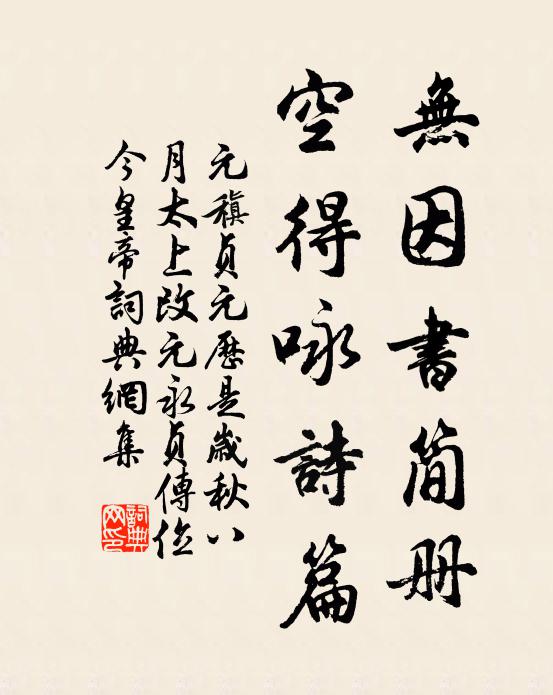 無因書簡册
空得咏詩篇
元稹貞元歷是歲秋八
月太上改元永貞傳位
今皇帝詞典網集
詞典
网印